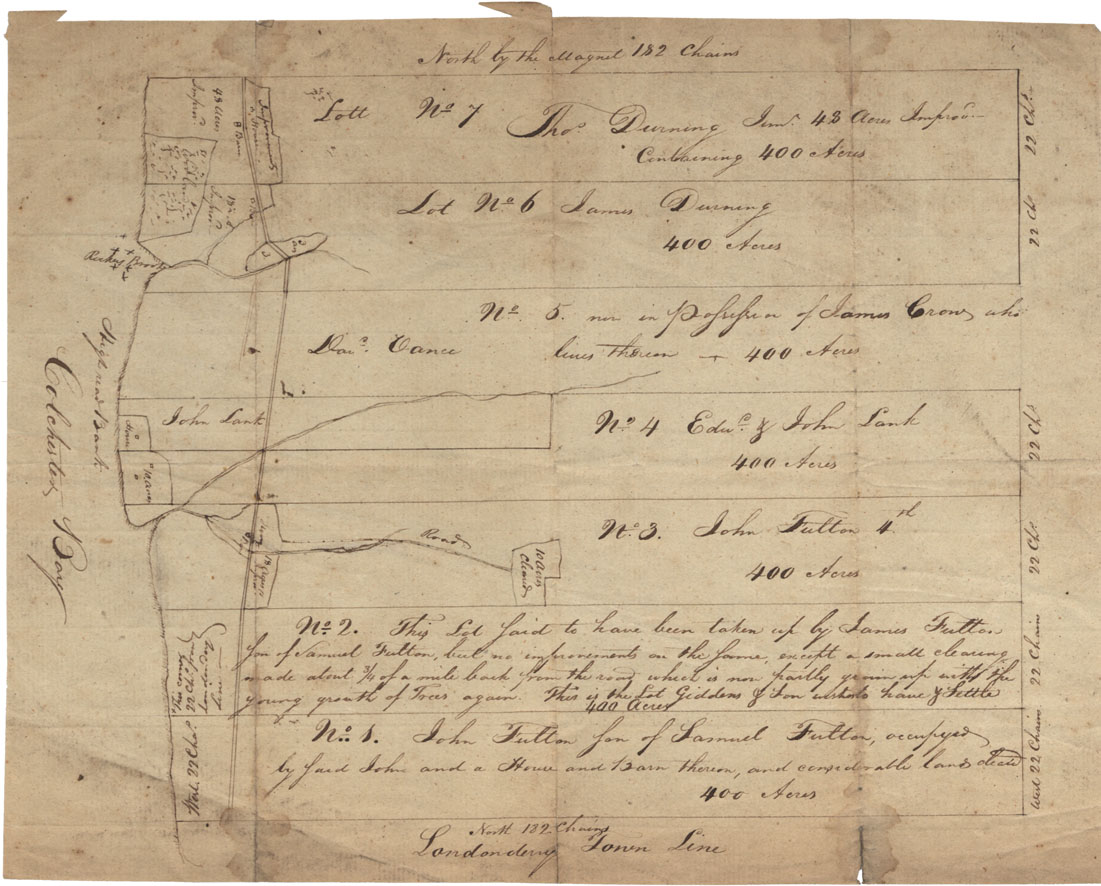 North by the Magnet 182 Chains
Lott No 7 Thos Durning Junr 48 Acres Improvd
Containing 400 Acres
22 Chs
48 Acres
Improv
Barn
Improvements
House
Lot No 6 James Durning
400 Acres
22 Chs
Rocky Brook
No. 5. now in possession of James Crow, who
Davd. Vance lives thereon + 400 Acres
High road Bank
Colchester Bay
John Lank
No 4 Edwd. & John Lank
400 Acres
22 Chs
10 Acres
No. 3. John Fulton 4th
400 Acres
22 Chs
Road
10 Acres
Cleard
No. 2. This Lot said to have been taken up by James Fulton
son of Samuel Fulton, but no improvements on the same, except a small clearing
made about 3/4 of a mile back from the road, which is now partly grown up with the
young growth of Trees again. This is the Lot Giddens & Son wishes to have & Settle
400 Acres
22 Chain
No. 1. John Fulton son of Samuel Fulton, occupyed
by said John and a House and Barn thereon, and considerable land cleard
400 Acres
West 22 Chains
North 182 Chains
Londonderry Town Line